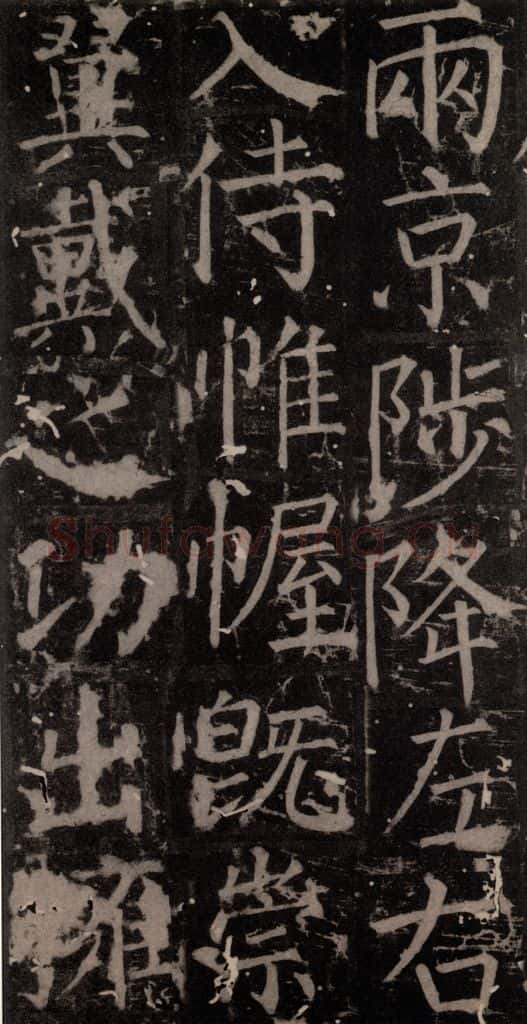 兩京陟降左右
入侍帷幄既崇
翼戴之功出擁
Shufawang.cn